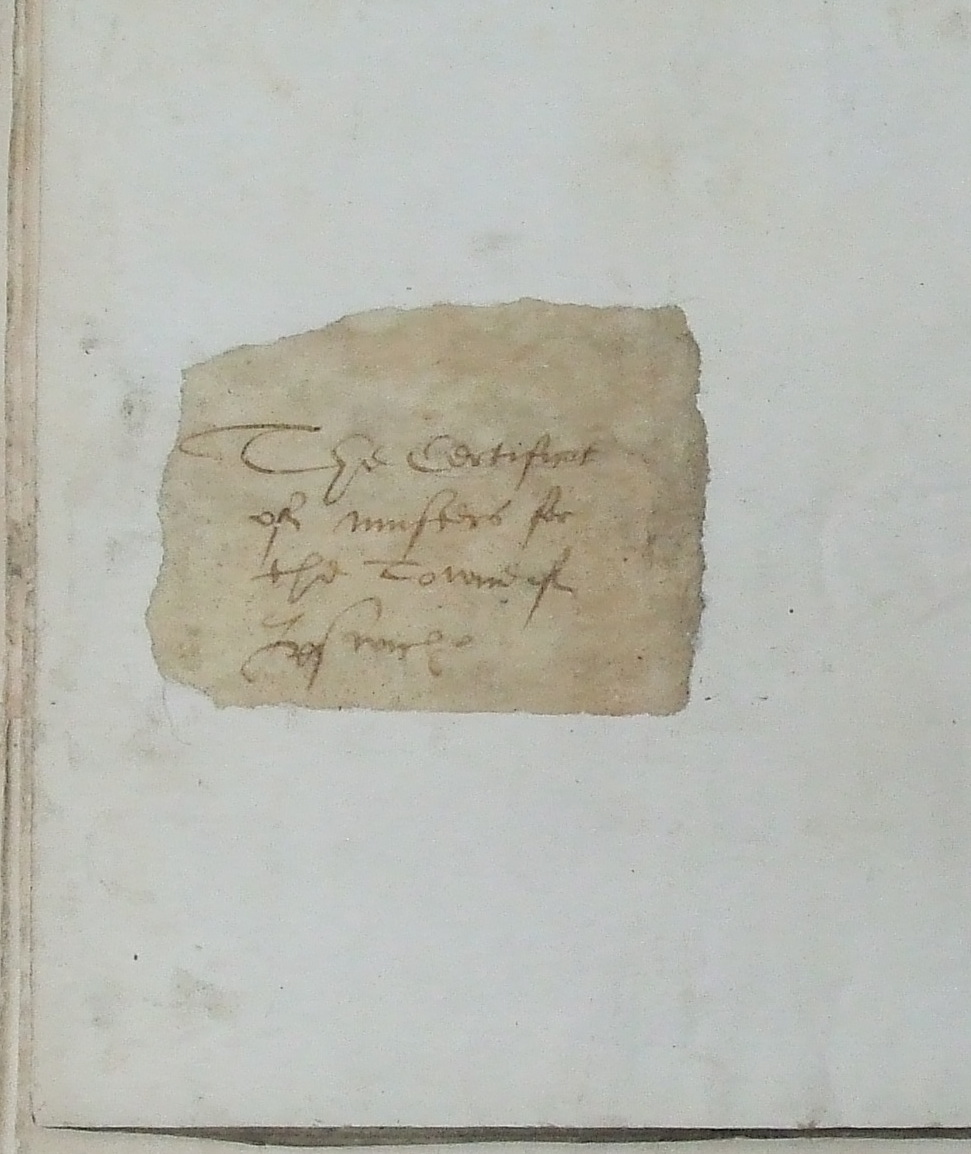 The Certificat
of musters for
the Towne of
Ipswiche